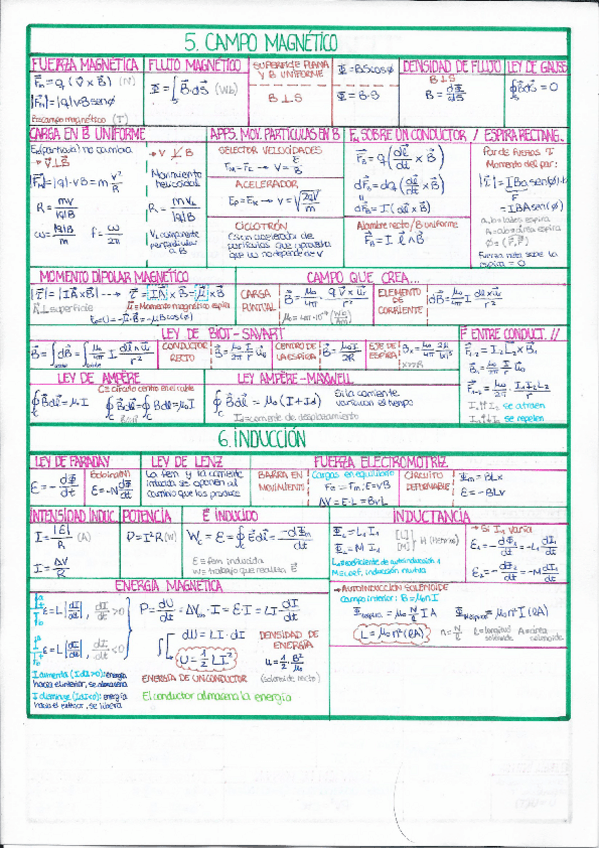 5. CAMPO MAGNÉTICO
FUERZA MAGNÉTICA
F⃗m = q (v⃗ × B⃗) (N)
|F⃗m| = |q| v B senϕ
B = campo magnético (T)
FLUJO MAGNÉTICO
Φ = ∫s B⃗ dS⃗ (Wb)
SUPERFICIE PLANA Y B UNIFORME
B ⊥ S
Φ = BS cosϕ
Φ = B·S
DENSIDAD DE FLUJO
B ⊥ S
B = dΦ/dS
LEY DE GAUSS
∮s B⃗ dS⃗ = 0
CARGA EN B⃗ UNIFORME
Ec (partícula) no cambia
→ v⃗ ⊥ B⃗
|F⃗m| = |q|·v·B = m v²/R
R = mv/|q|B
ω = |q|B/m
f = ω/2π
Movimiento helicoidal
R = mv⊥/|q|B
v⊥ componente perpendicular a B
APPS. MOV. PARTÍCULAS EN B
SELECTOR VELOCIDADES
Fm = Fe → v = E/B
ACELERADOR
Ep = Ek → v = √(2qV/m)
CICLOTRÓN
F⃗m SOBRE UN CONDUCTOR / ESPIRA RECTANG.
F⃗m = q (dl⃗/dt × B⃗)
dF⃗m = dq (dl⃗/dt × B⃗)
dF⃗m = I (dl⃗ × B⃗)
Alambre recto/B uniforme
F⃗m = I l⃗ ∧ B⃗
Par de fuerzas τ
Momento del par:
|τ⃗| = IBa sen(ϕ)·b = IBA sen(ϕ)
a, b = lados espira
A = ab = área espira
Fuerza neta sobre la espira = 0
MOMENTO DIPOLAR MAGNÉTICO
|τ⃗| = |IA⃗ × B⃗| → τ⃗ = IA⃗ × B⃗ = μ⃗ × B⃗
A⃗ ⊥ superficie
μ⃗ = Momento magnético espira
Ep = U = -μ⃗·B⃗ = -μB cos(ϕ)
CAMPO QUE CREA...
CARGA PUNTUAL
B⃗ = μ₀/4π · q v⃗ × u⃗r / r²
μ₀ = 4π·10⁻⁷ (Wb/Am)
ELEMENTO DE CORRIENTE
dB⃗ = μ₀/4π I dl⃗ × u⃗r / r²
LEY DE BIOT-SAVART
B⃗ = ∫ dB⃗ = ∫ μ₀/4π I dl⃗ ∧ u⃗r / r²
CONDUCTOR RECTO
B⃗ = μ₀/2π I/r u⃗
CENTRO DE LA ESPIRA
B⃗ = μ₀I/2R
EJE DE ESPIRA
x>>R
F⃗ ENTRE CONDUCT. //
F⃗₁₋₂ = I₂L⃗₂ × B⃗₁
B⃗₁ = μ₀/2π I₁/r
F⃗₁₋₂ = μ₀/2π · I₁I₂L₂/r
I₁↑↑I₂ se atraen
I₁↑↓I₂ se repelen
LEY DE AMPÈRE
C = círculo centro en el cable
∮c B⃗ dl⃗ = μ₀I
∮c B⃗ dl⃗ = ∮c B dl = μ₀I
LEY AMPÈRE-MAXWELL
∮c B⃗ dl⃗ = μ₀ (I + Id)
Si la corriente varía con el tiempo
Id = corriente de desplazamiento
6. INDUCCIÓN
LEY DE FARADAY
ε = - dΦ/dt
ε = -N dΦ/dt
LEY DE LENZ
La fem y la corriente inducida se oponen al camino que las produce
FUERZA ELECTROMOTRIZ
BARRA EN MOVIMIENTO
Cargas en equilibrio
Fe = Fm; E = vB
ΔV = E·L = BvL
CIRCUITO DEFORMABLE
Φm = BLx
ε = -BLv
INTENSIDAD INDUC.
I = |ε|/R (A)
I = ΔV/R
POTENCIA
P = I²R (W)
E⃗ INDUCIDO
Wc = ε = ∮c E⃗ dl⃗ = -dΦm/dt
ε = fem inducida
INDUCTANCIA
Φ₁ = L₁I₁
Φ₂ = M I₁
H (Henrios)
L = coeficiente de autoinducción
M = coef. inducción mutua
→ Si I₁ varía
ε₁ = -dΦ₁/dt = -L₁ dI₁/dt
ε₂ = -dΦ₂/dt = -M dI₁/dt
ENERGÍA MAGNÉTICA
ε = L |dI/dt|, dI/dt > 0
ε = L |dI/dt|, dI/dt < 0
I aumenta (dI>0): energía hacia el interior, se almacena
I disminuye (dI<0): energía hacia el exterior, se libera
P = dU/dt = ΔV·I = ε·I = LI·dI/dt
dU = LI·dI
U = 1/2 LI²
ENERGÍA DE UN CONDUCTOR
El conductor almacena la energía
DENSIDAD DE ENERGÍA
u = 1/2 · B²/μ₀
(solenoide recto)
→ AUTOINDUCCIÓN SOLENOIDE
Campo interior: B = μ₀nI
L = μ₀n²(lA)
n = N/l
l = longitud solenoide